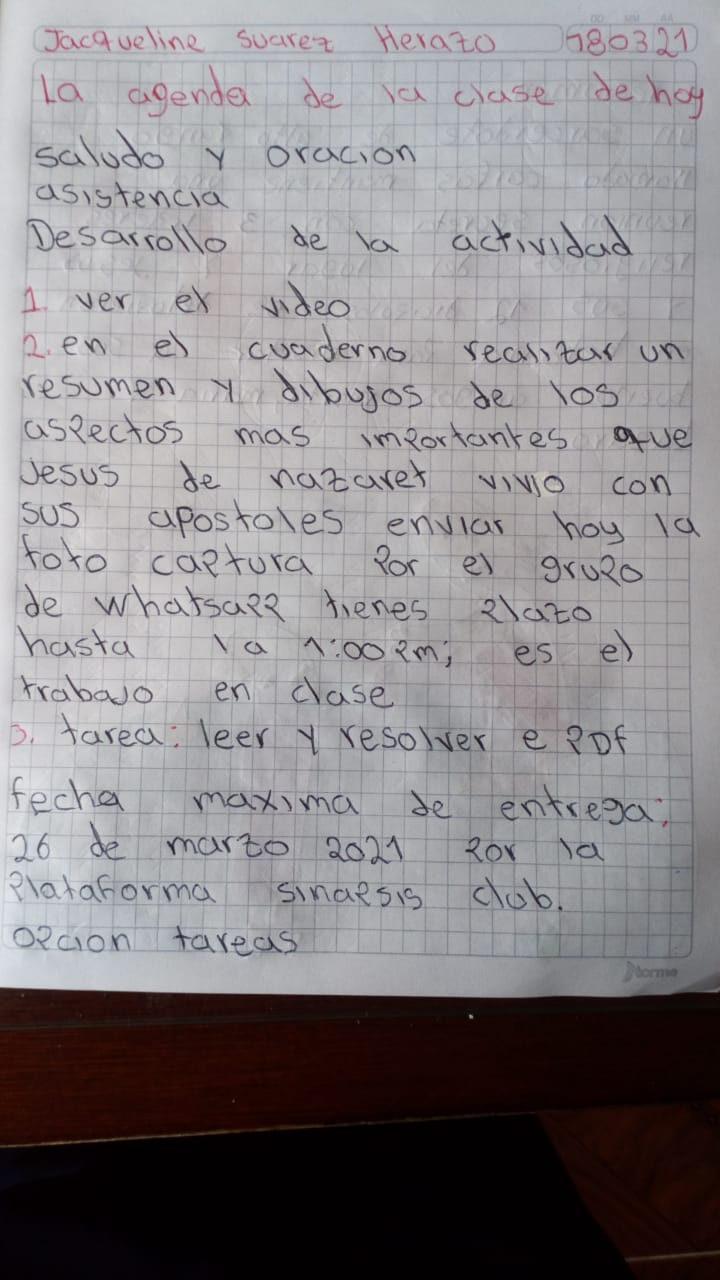 Jacqueline suarez Herazo 180321
La agenda de la clase de hoy
saludo y oracion
asistencia
Desarrollo de la actividad
1. ver el video
2. en el cuaderno realizar un
resumen y dibujos de los
aspectos mas importantes que
Jesus de nazaret vivio con
sus apostoles enviar hoy la
foto captura por el grupo
de whatsapp tienes plazo
hasta la 1:00 pm; es el
trabajo en clase
3. tarea: leer y resolver e PDf
fecha maxima de entrega:
26 de marzo 2021 por la
plataforma sinapsis club.
opcion tareas
norma